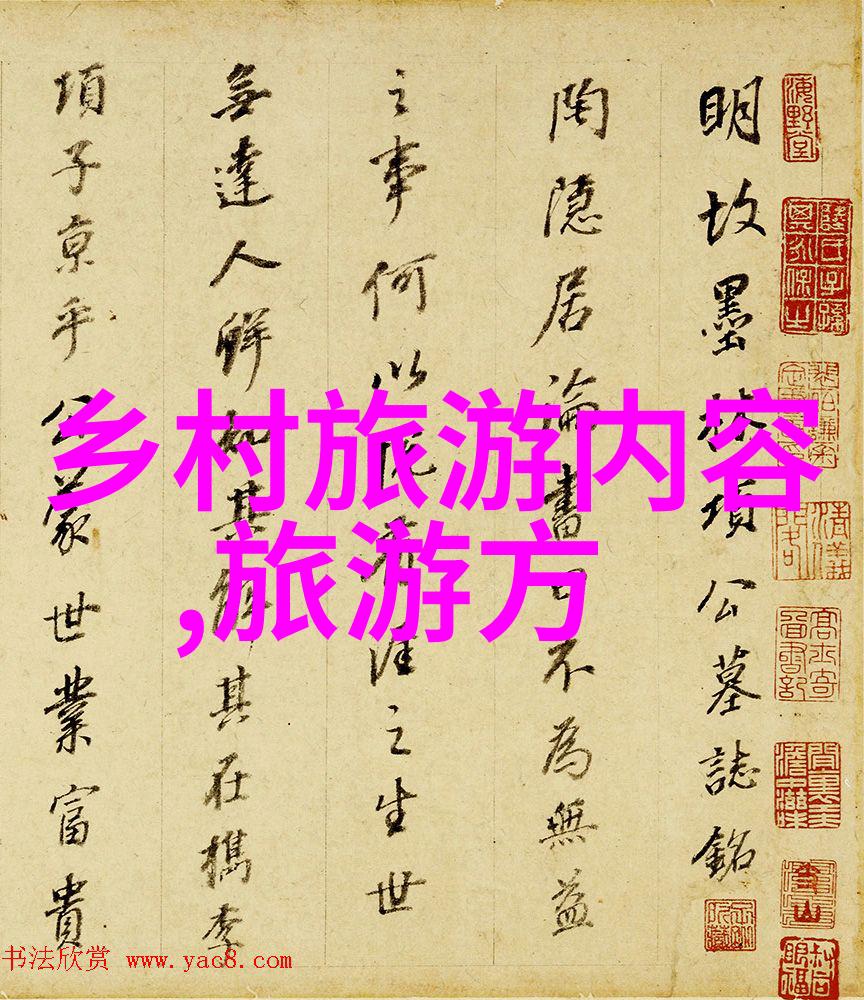 海野堂
明故墨林項公墓誌銘
陶隱居論書曰不為無益
之事何以悅有涯之生世
無達人鮮知其解其在檇李
項子京乎公蒙世業富貴
乡村旅游内容
,旅游方
书法欣赏 www.yac8.com